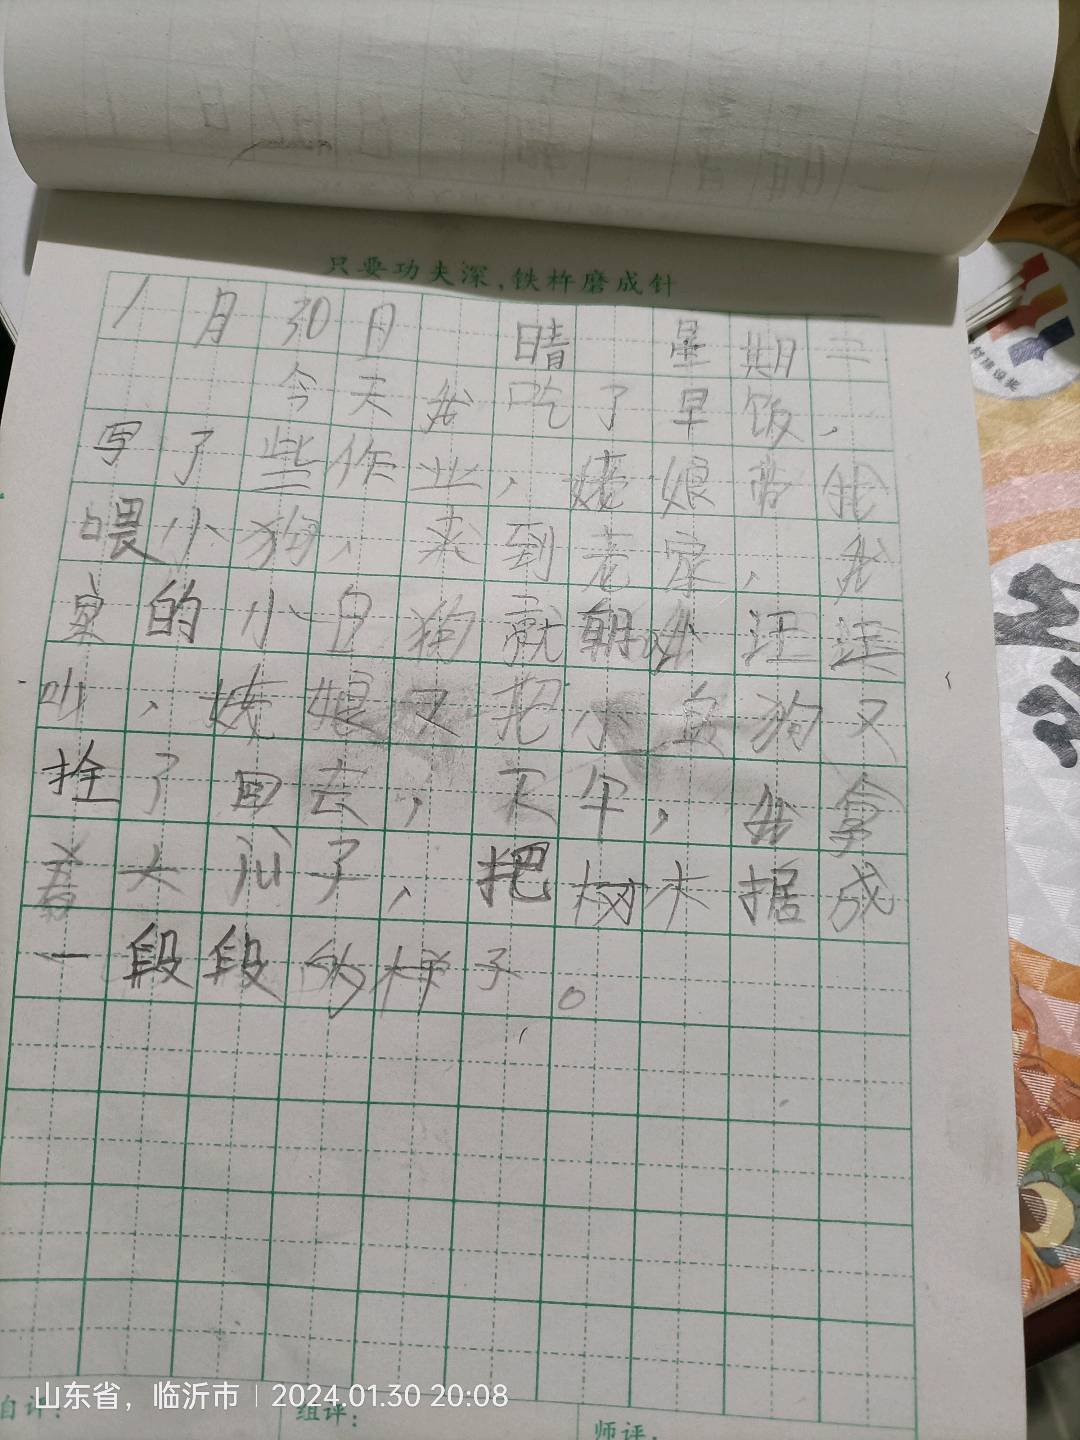 只要功夫深，铁杵磨成针
1月30日 晴 星期二
今天我吃了早饭，
写了些作业，姨娘带我
喂小狗，来到老家，我
家的小白狗就朝我汪汪
叫，姨娘又把小白狗又
拴了回去，下午，我拿
着大 子，把树木据成
一段段的样子。
山东省，临沂市 | 2024.01.30 20:08
自评：
组评：
师评：